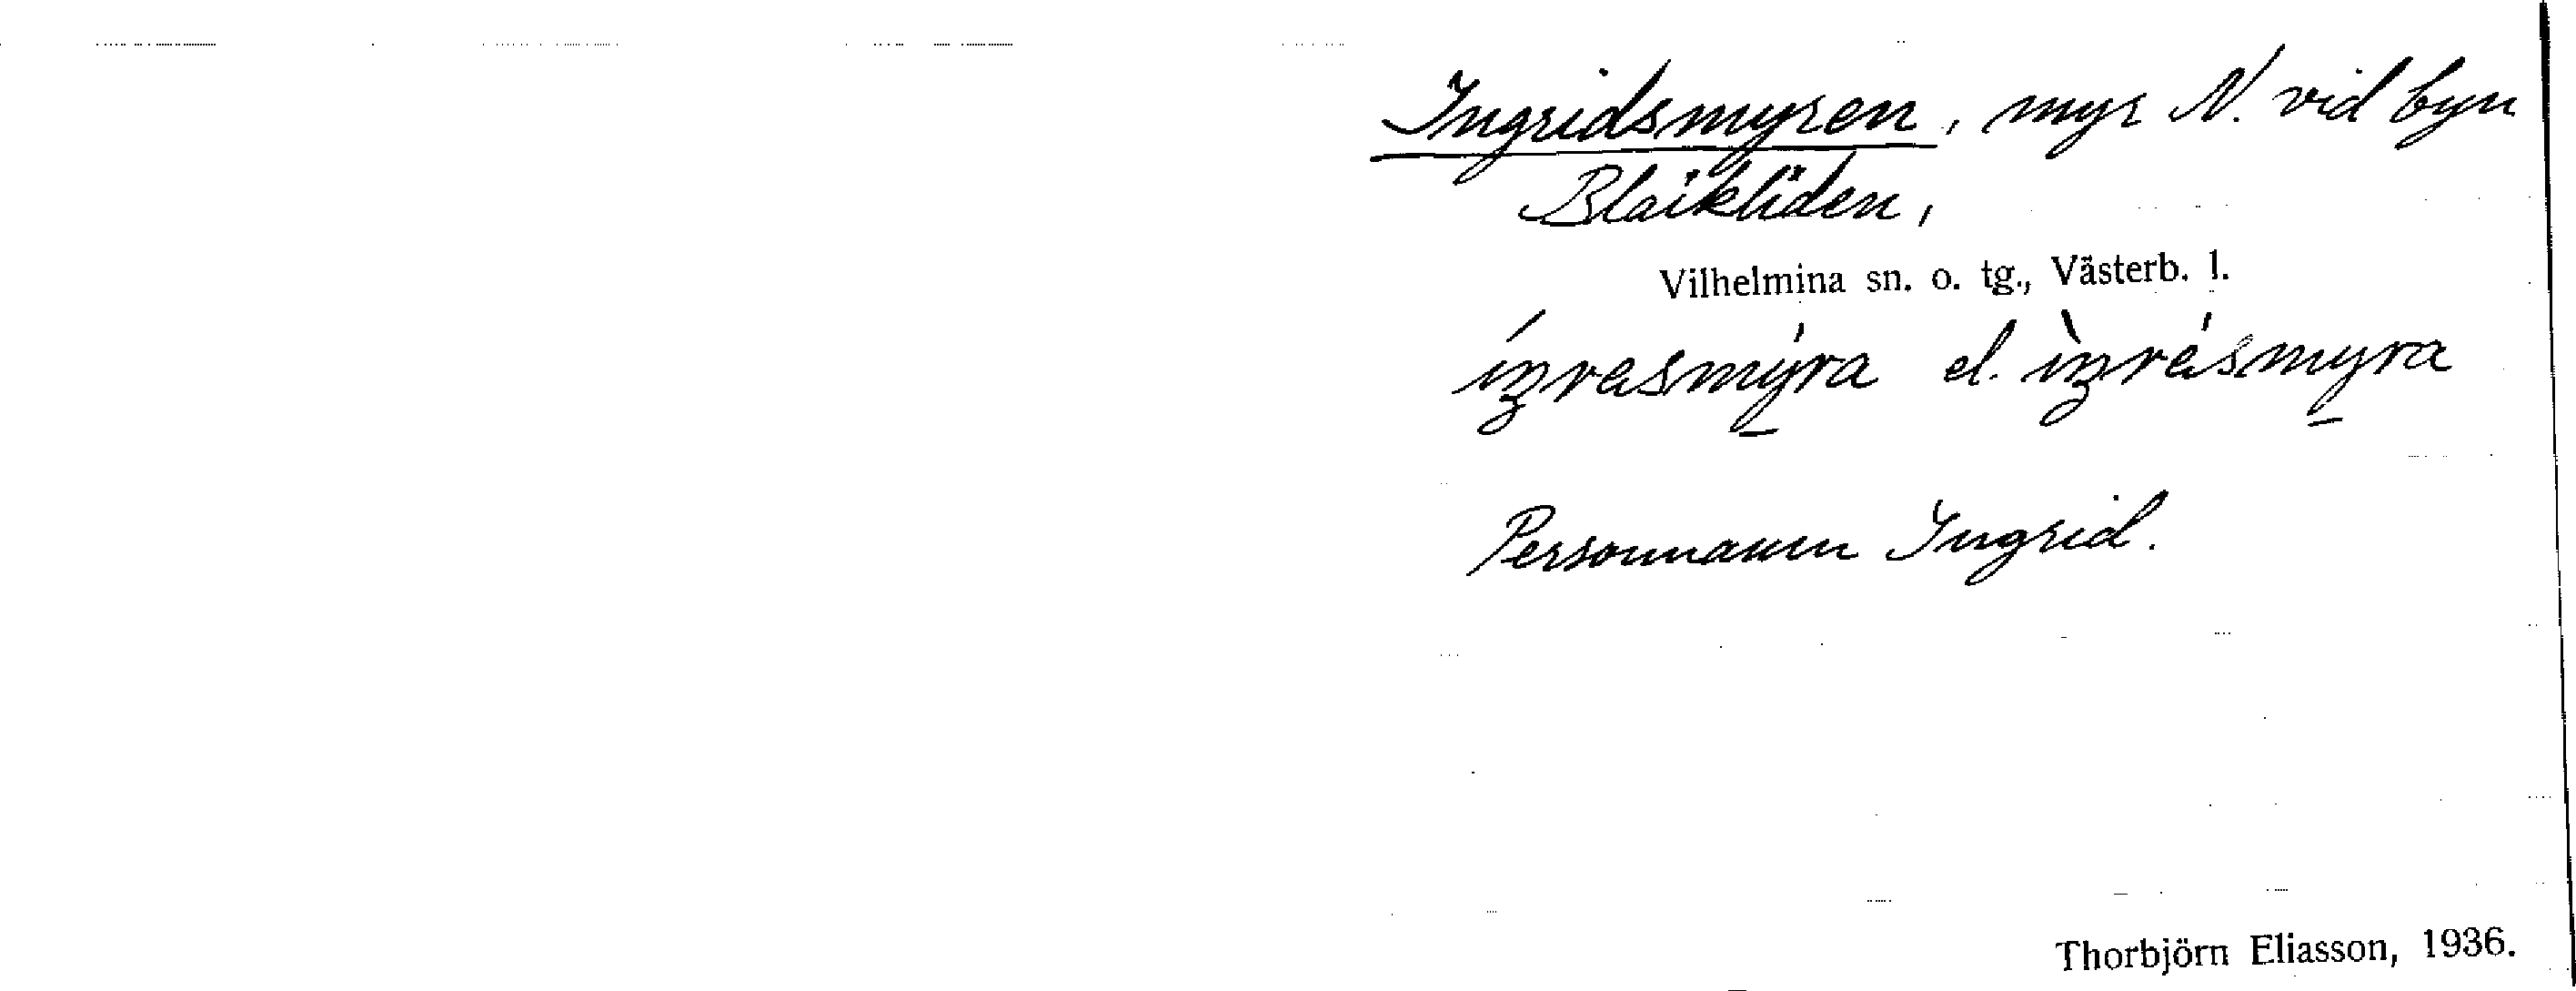 Ingridsmyren, myr N. vid byn
Blaikliden,
Vilhelmina sn. o. tg., Västerb. l.
el.
Personnamn Ingrid.
Thorbjörn Eliasson, 1936.